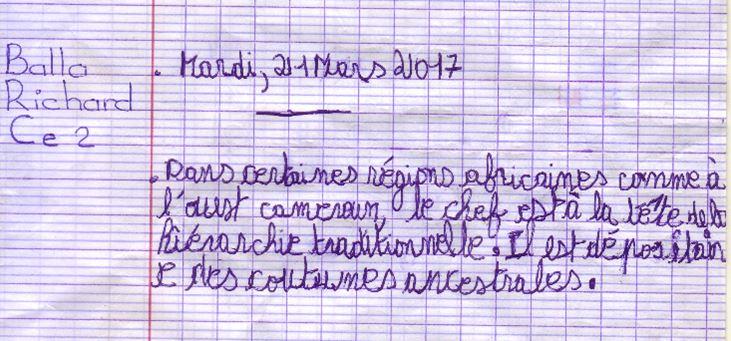 Balla
Richard
Ce 2
. Mardi, 21 Mars 2017
. Dans certaines régions africaines comme à
l'ouest cameroun, le chef est à la tête de la
hiérarchie traditionnelle. Il est dépositair
e des coutumes ancestrales.